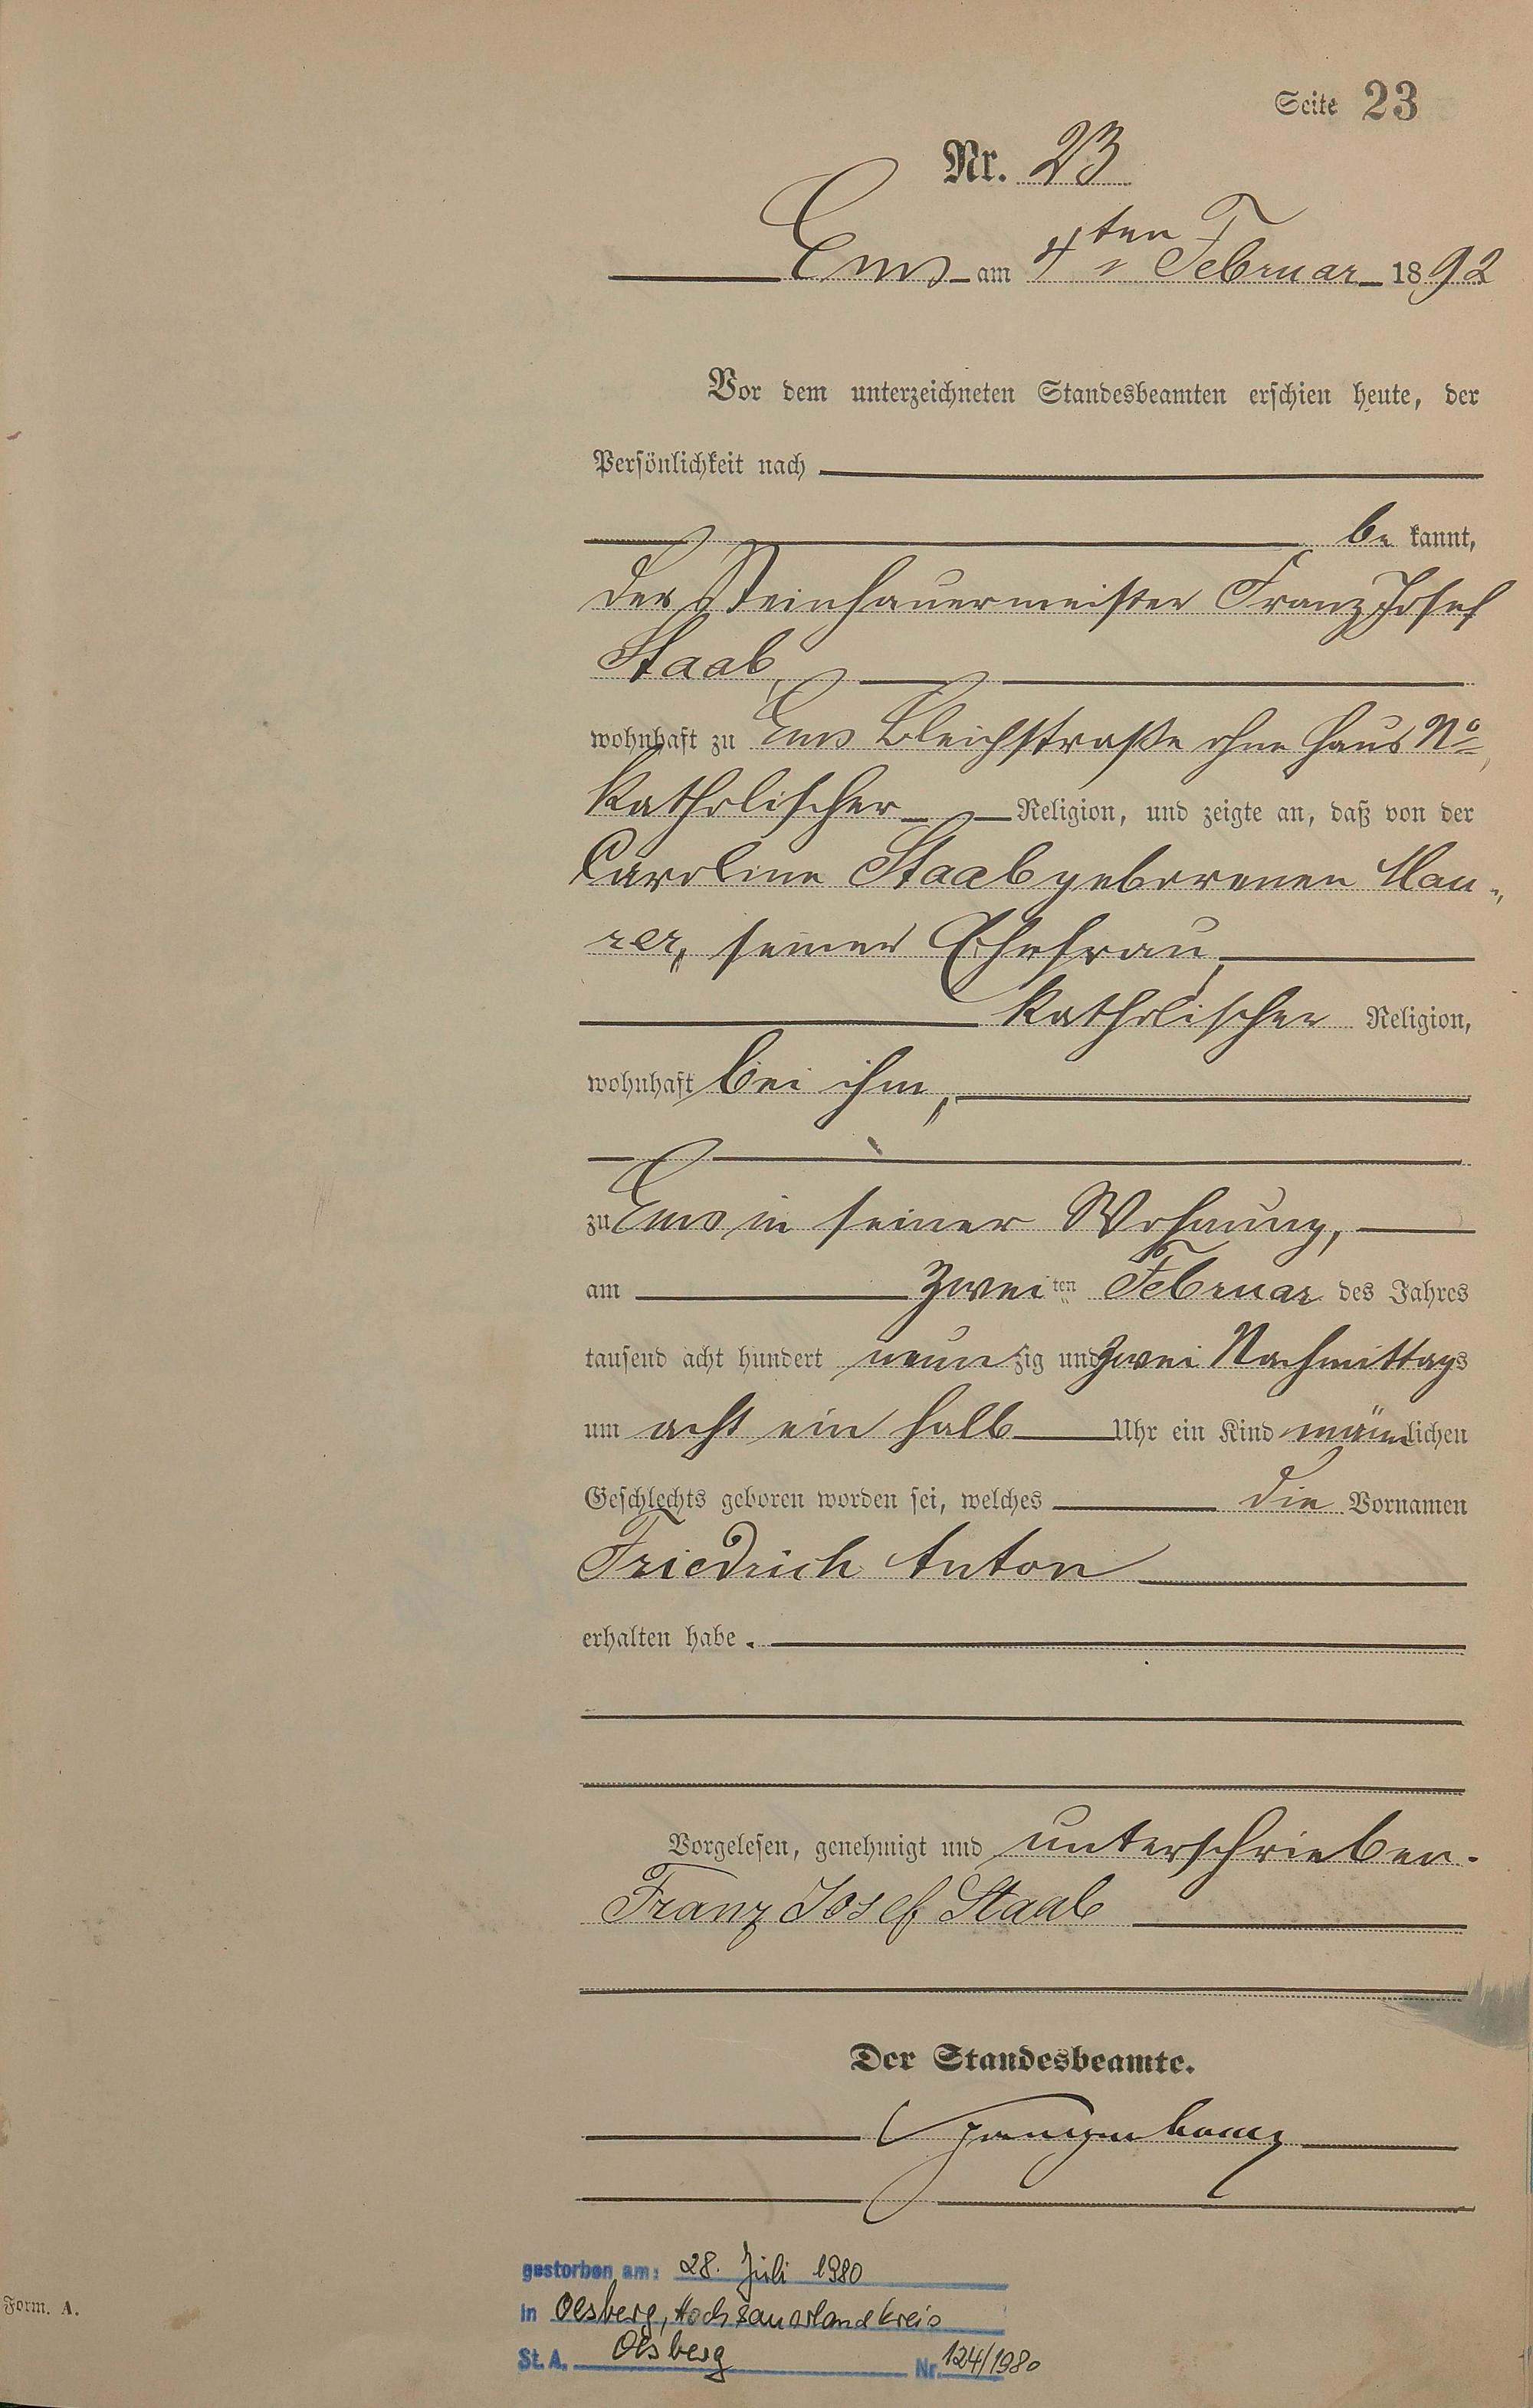 Seite 23
Nr. 23
Ems am 4ten Februar 1892
Vor dem unterzeichneten Standesbeamten erschien heute, der
Persönlichkeit nach
be kannt,
der Steinhauermeister Franz Josef
Staab,
wohnhaft zu Ems Bleichstraße ohne Haus No,
katholischer Religion, und zeigte an, daß von der
Caroline Staab geborenen Mau-
rer, seiner Ehefrau,
katholischer Religion,
wohnhaft bei ihm,
zu Ems in seiner Wohnung,
am zweiten Februar des Jahres
tausend acht hundert neunzig und zwei Nachmittags
um acht ein halb Uhr ein Kind männlichen
Geschlechts geboren worden sei, welches die Vornamen
Friedrich Anton
erhalten habe.
Vorgelesen, genehmigt und unterschrieben.
Franz Josef Staab
Der Standesbeamte.
gestorben am: 28. Juli 1980
in Olsberg, Hochsauerlandkreis
St. A. Olsberg Nr. 124/1980
Form. A.